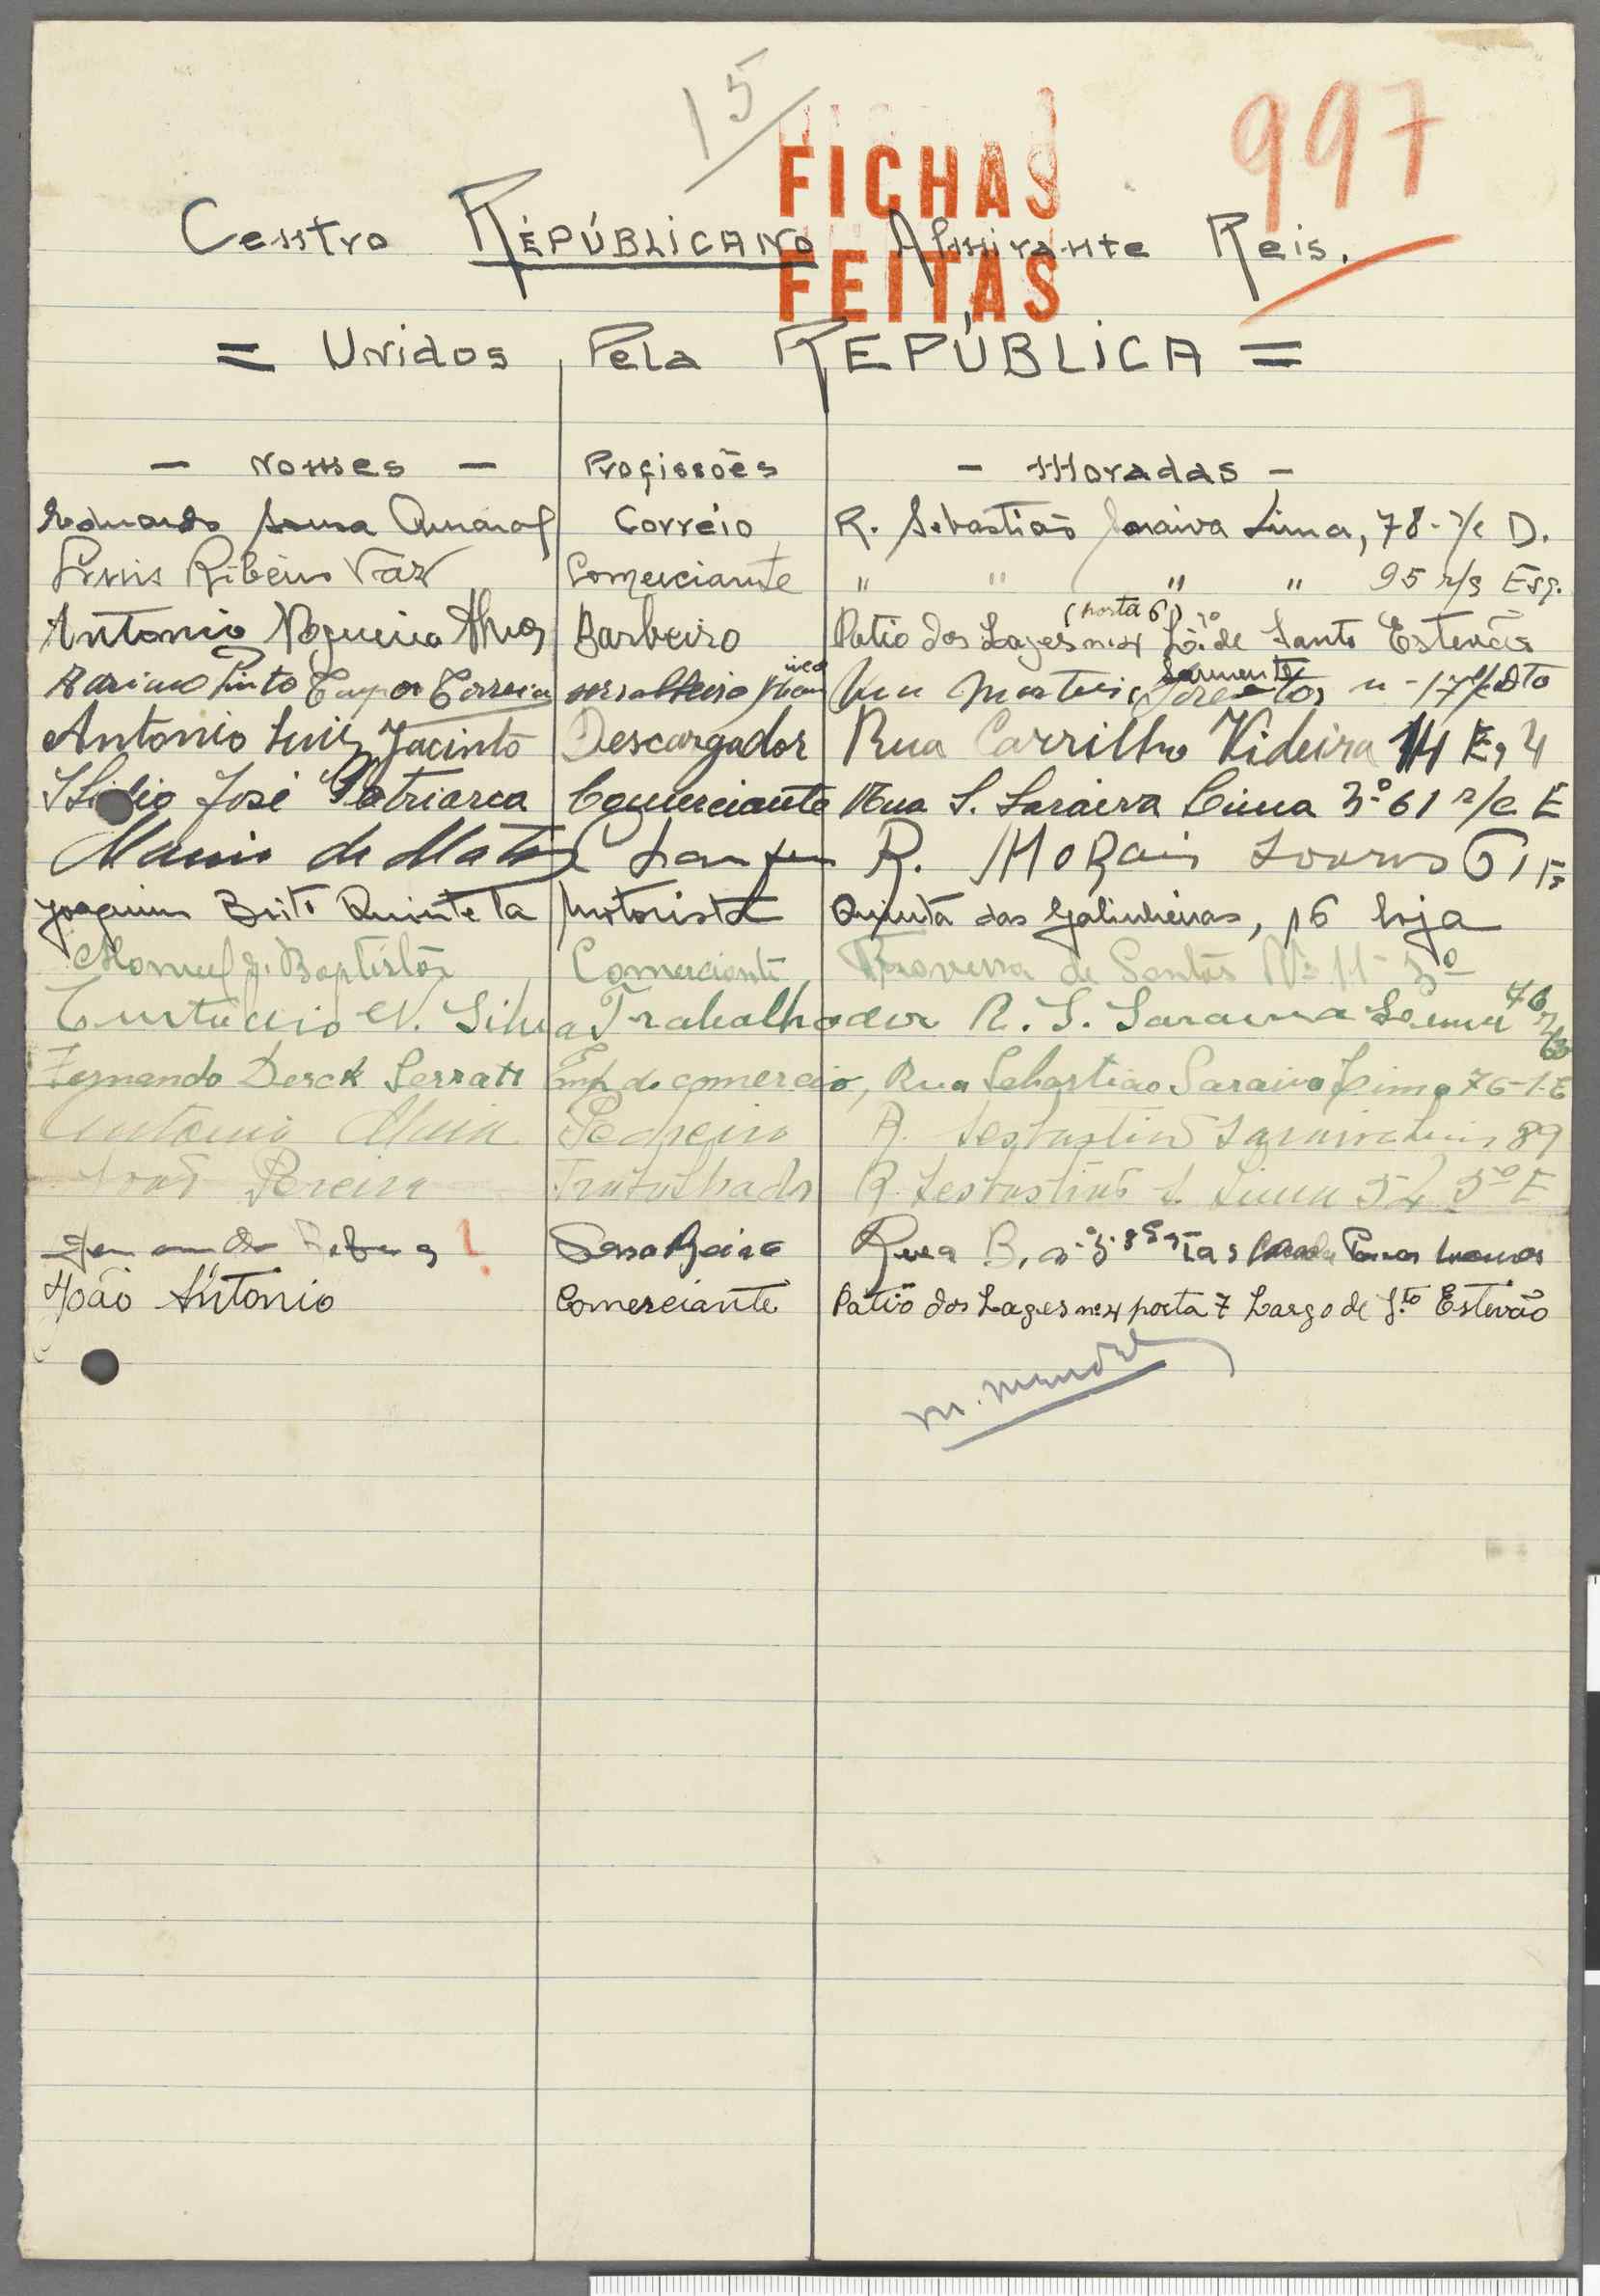 15
FICHAS
FEITAS
997
Centro RÉPÚBLICANO Almirante Reis.
= Unidos Pela REPÚBLICA =
- Nomes - Profissões - Moradas -
Eduardo Sousa Amaral Correio R. Sebastião Saraiva Lima, 78 - r/c D.
Luis Ribeiro Vaz Comerciante " " " " 95 r/c Esq.
Antonio Nogueira Alves Barbeiro Patio dos Lages nº 4 (porta 6) Lº de Santo Estevão
Pinto Correia serralheiro Rua Sarmento n - 17 Dto
Antonio Luiz Jacinto Descargador Rua Carrilho Videira 14 E, 4
Ilidio José Patriarca Comerciante Rua S. Saraiva Lima 3º 61 r/c E
Mario de Matos R. Morais Soares 61
Joaquim Brito Quinteta Motorista Quinta das Galinheiras, 16 loja
Manuel J. Baptista Comerciante Travessa de Santos Nº 11 - 3º
N. Silva Trabalhador R. S. Saraiva Lima 76
Fernando Derck Serrate Emp. do comercio, Rua Sebastiao Saraiva Lima 76-1-E
Antonio Maia Pedreiro R. Sesbastião Saraiva Lima 89
João Pereira Trabalhador R. Sesbastião S. Lima 54 5º E
? Rua B,
João António Comerciante Patio dos Lages nº 4 porta 7 Largo de S.to Estevão